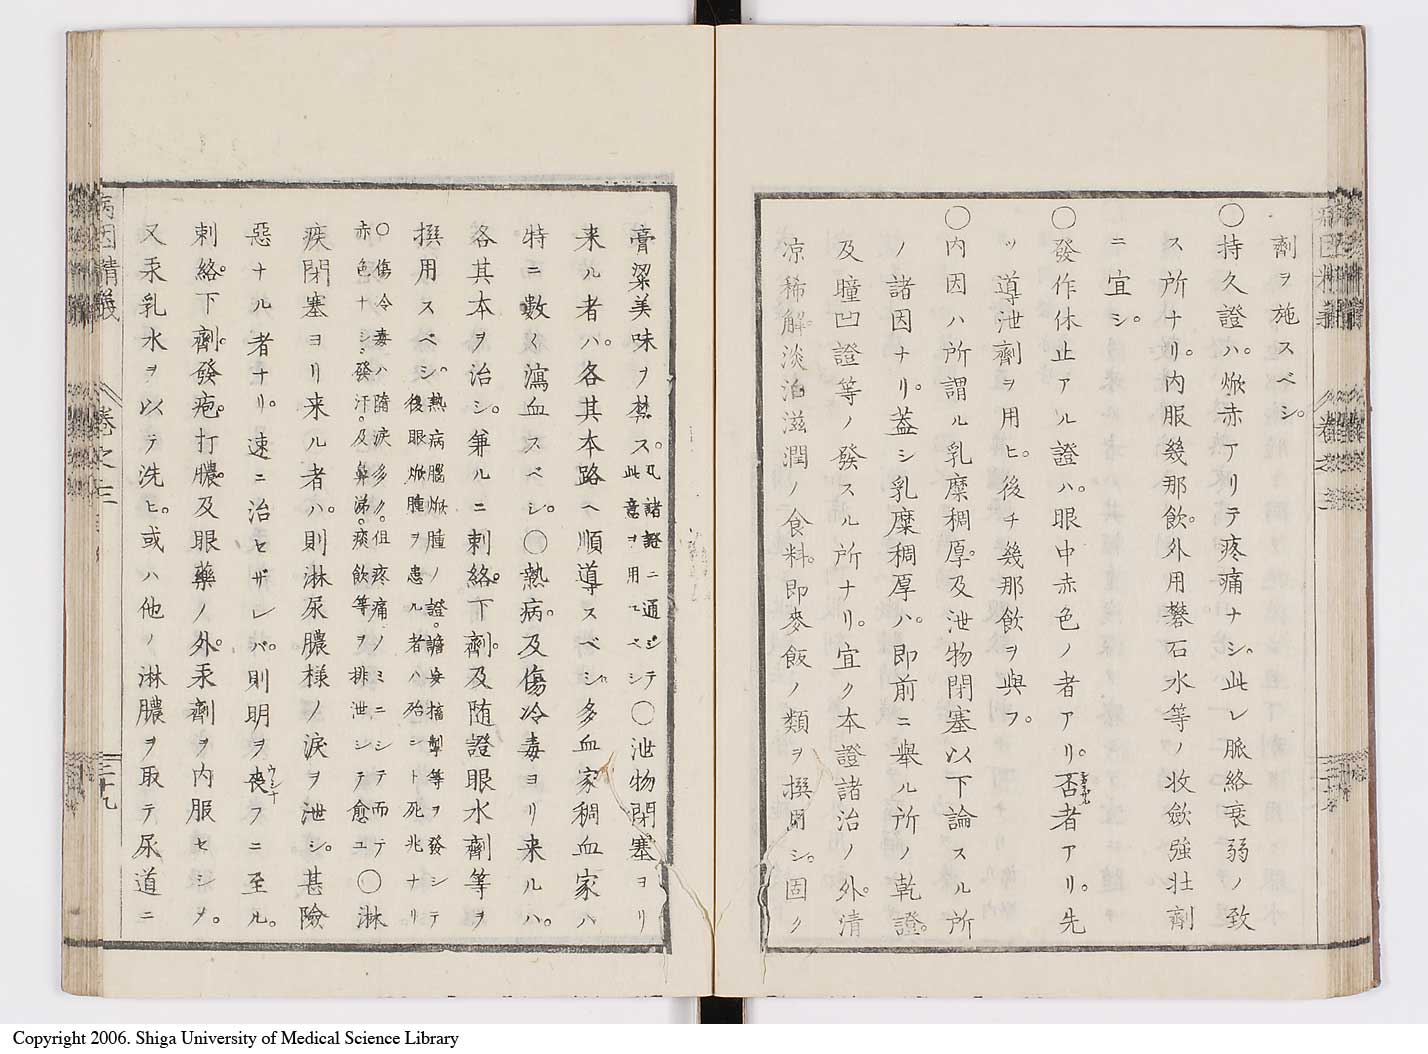 劑ヲ施スベシ。
〇持久證ハ。焮赤アリテ疼痛ナシ。此レ脈絡衰弱ノ致
ス所ナリ。内服幾那飲。外用礬石水等ノ收斂強壯劑
ニ宜シ。
〇發作休止アル證ハ。眼中赤色ノ者アリ。否者アリ。先
ツ導泄劑ヲ用ヒ。後チ幾那飲ヲ與フ。
〇内因ハ所謂ル乳糜稠厚。及泄物閉塞以下論スル所
ノ諸因ナリ。蓋シ乳糜稠厚ハ。即前ニ舉ル所ノ乾證。
及瞳凹證等ノ發スル所ナリ。宜ク本證諸治ノ外。清
凉稀解。淡泊滋潤ノ食料。即麥飯ノ類ヲ撰用シ。固ク
膏粱美味ヲ禁ス。凡諸證ニ通ジテ此意ヲ用ユベシ〇泄物閉塞ヨリ
来ル者ハ。各其本路ヘ順導スベシ多血家稠血家ハ
特ニ數〱瀉血スベシ。〇熱病。及傷冷毒ヨリ来ルハ。
各其本ヲ治シ。兼ルニ刺絡。下劑。及随證眼水劑等ヲ
撰用スベシ。熱病腦焮腫ノ證。譫妄搐掣等ヲ發シテ
後眼焮腫ヲ患ル者ハ殆シト死兆ナリ
〇傷冷毒ハ隋涙多ク。但疼痛ノミニシテ而テ
赤色ナシ。發汗。及鼻涕。痰飲等ヲ排泄シテ愈ユ〇淋
疾閉塞ヨリ来ル者ハ。則淋尿膿様ノ涙ヲ泄シ。甚險
惡ナル者ナリ。速ニ治セザレバ。則明ヲ喪フニ至ル。
ウシナ
刺絡。下劑。發疱。打膿。及眼藥ノ外。汞劑ヲ内服セシメ。
又汞乳水ヲ以テ洗ヒ。或ハ他ノ淋膿ヲ取テ尿道ニ
病因精義
卷之三
三十九
Copyright 2006. Shiga University of Medical Science Library